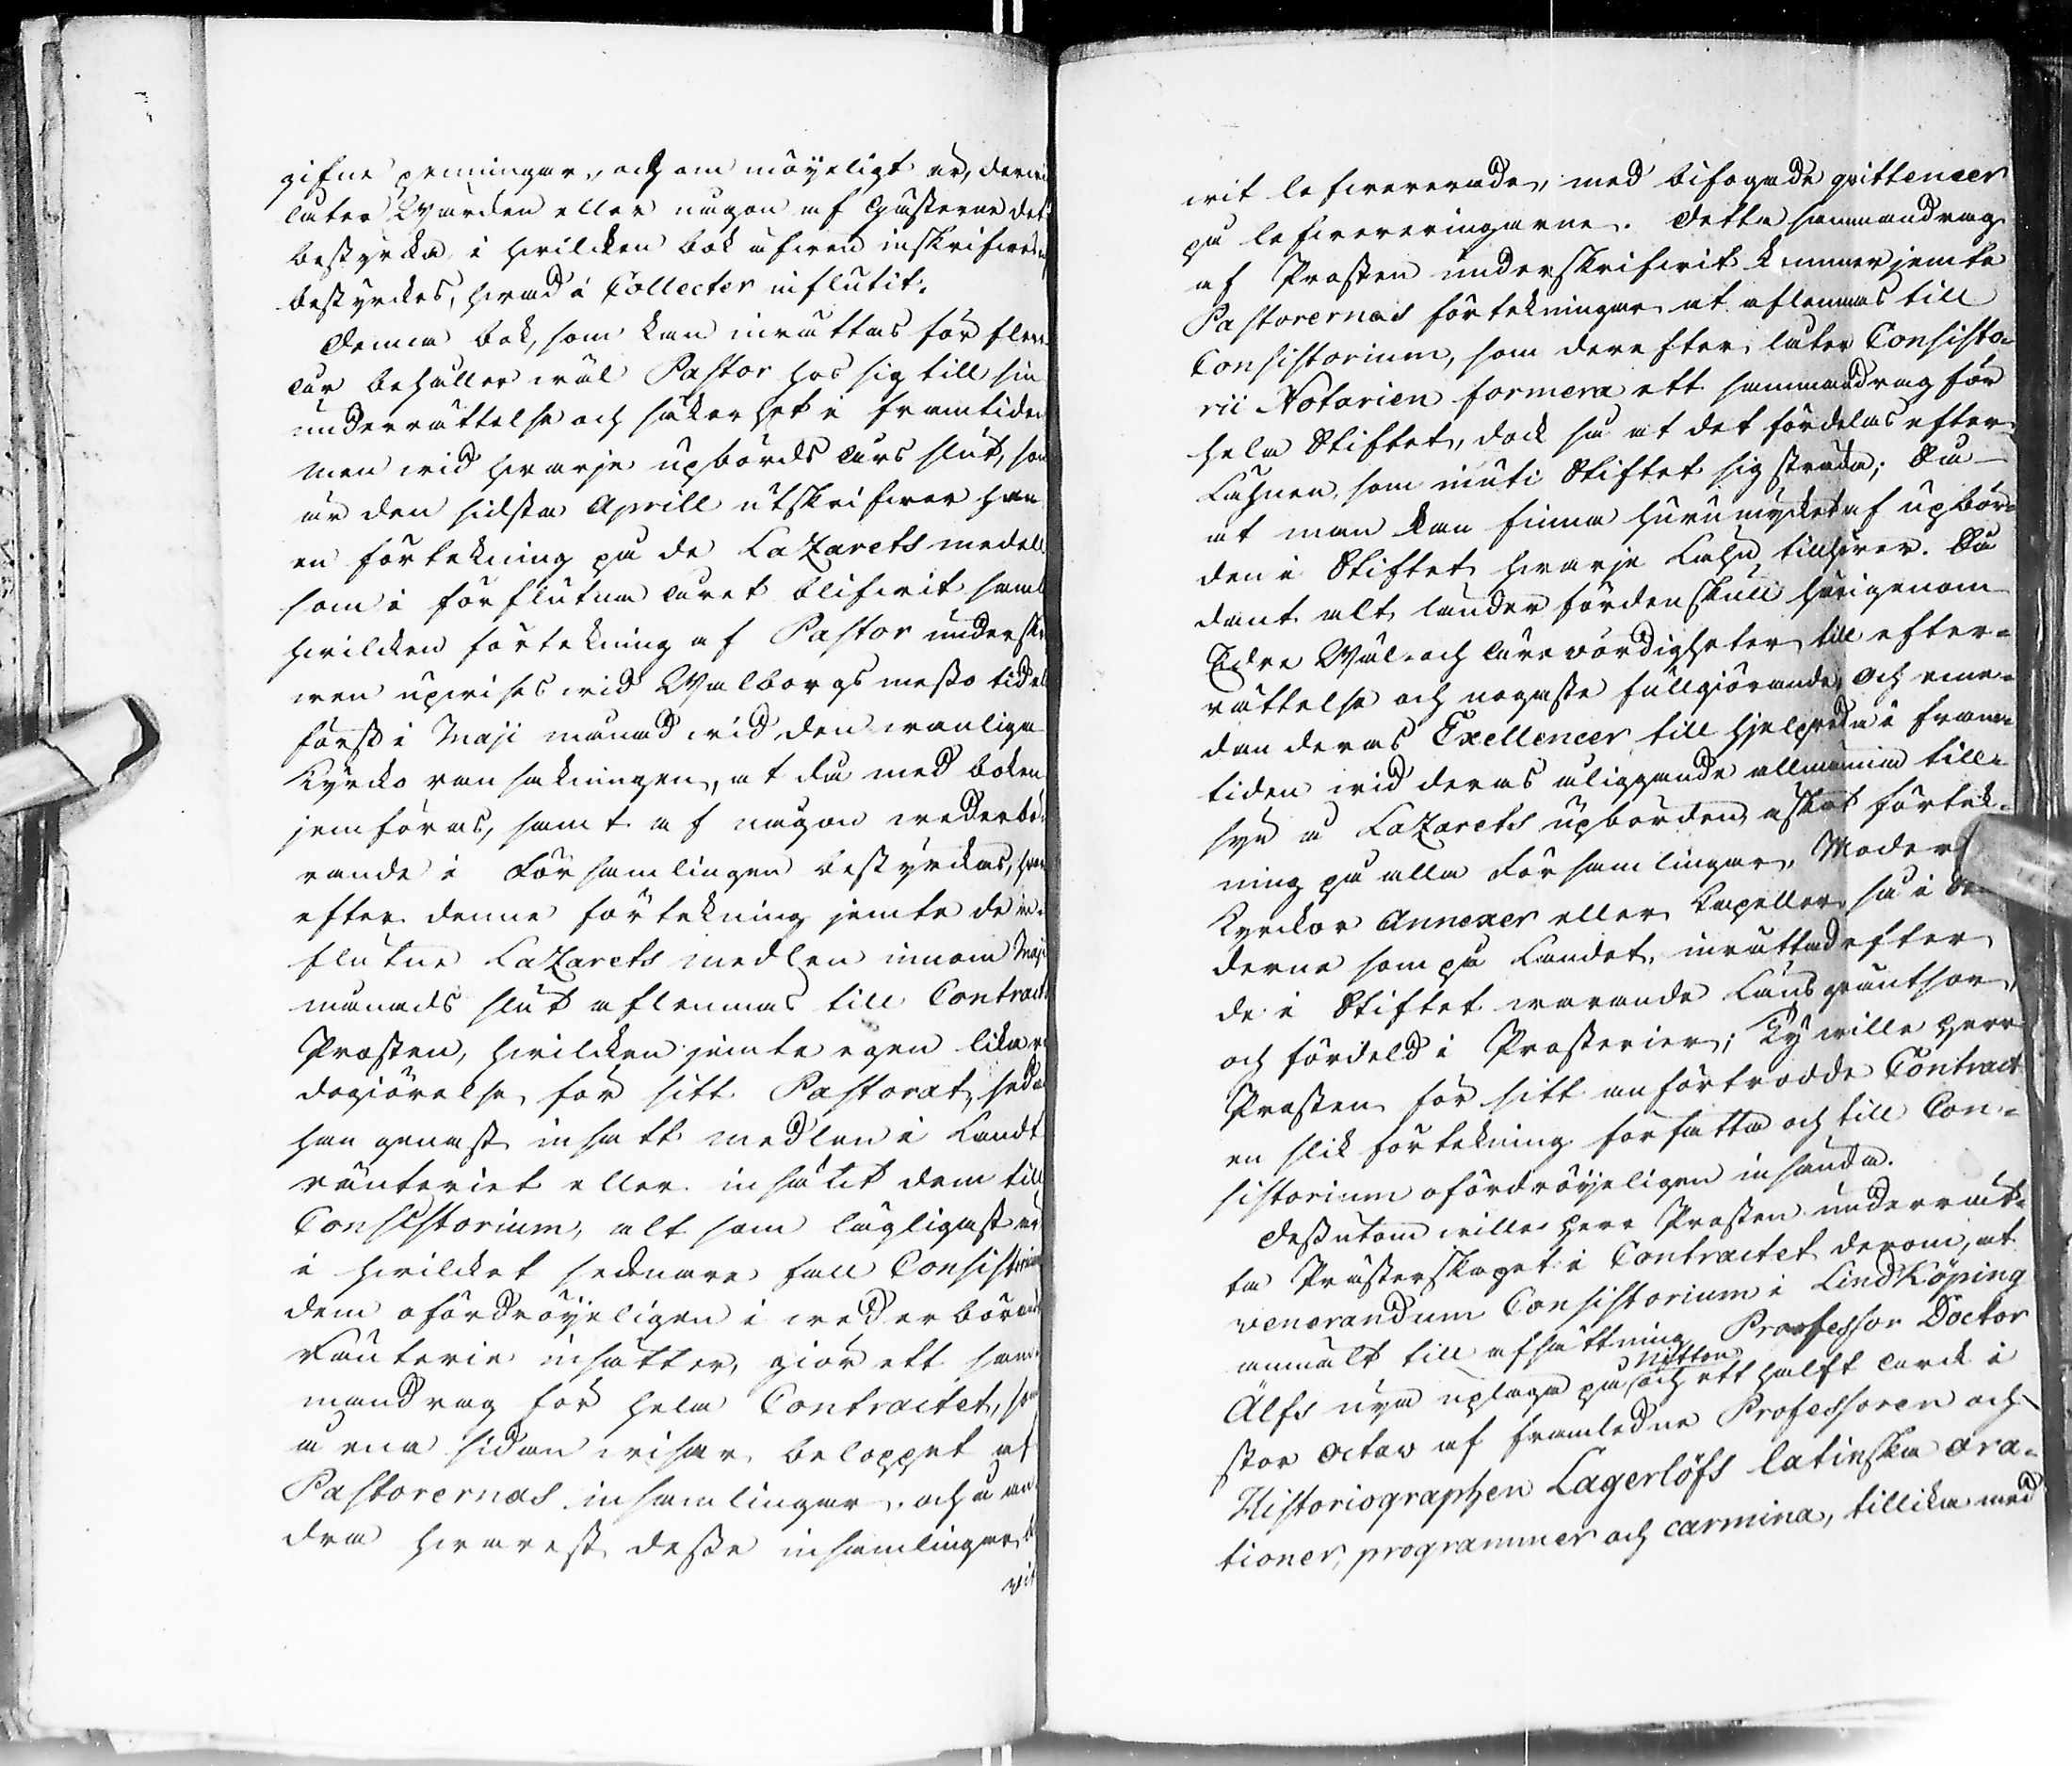 gifne penningar, och om möyeligt är, derwid
låter Wärden eller någon af Gästerne det
bestyrka, i hwilcken bok äfwen inskrifwes
bestyrckes, hwad i Collecter influtit.
Denna bok, som kan inrättas för flere
åur behåller wäl Pastor hos sig till sin
underrättelse och säkerhet i framtiden
men wid hwarje upbörds åurs slut, som
är den sidsta Aprill utskrifwer han
en förtekning på de LaZarets medel
som i förflutna åuret blifwit saml
hwilcken förtekning af Pastor underskr
wen upwises wid Walborgsmesso tiden
först i Maji månad wid den wanliga
Kyrko ransakningen, at då med boken
jemföras, samt af någon wederbö-
rande i Församlingen bestyrckas, hwar
efter denne förtekning jemte de in-
flutne LaZarets medlen innom Maji
månads slut aflemnas till Contracts
Prosten, hwilcken jemte egen lika re
dogiörelse för sitt Pastorat, sedan
han genast insatt medlen i Landt
ränteriet eller insändt dem till
Consistorium, alt som lägligast är
i hwilcket sednare fall Consistorium
dem ofördröyeligen i wederbörande
Ränterie insätter, giör ett sam-
mandrag för hela Contractet, som
å ena sidan wisar beloppet af
Pastorernas insamlingar, och å an
dra hwarest desse insamlingar
wit
wit lefwererade, med bifogade qvittencer
på lefwereringarne. Detta sammandrag
af Prosten underskrifwit kommer jemte
Pastorernas förtekningar at aflemnas till
Consistorium, som derefter låter Consisto-
rii Notarien formera ett sammandrag för
hela Stiftet, dock så at det fördelas efter
Lähnen, som inuti Stiftet sig sträcka; Så
at man kan finna huru mycket af upbör-
den i Stiftet hwarje Lähn tillhörer. Så
dant alt länder fördenskull härigenom
Eder Wäl- och Ährewördigheter till efter-
rättelse och nogaste fullgiörande; Och som
dan deras Exellencer till hjelpreda i fram-
tiden wid deras åliggande allmänna till-
syn å LaZarets upbörden äskat förtek-
ning på alla Församlingar, Moder
Kyrckor Annexer eller Capeller, så i Stä
derne som på Landet, inrättad efter
de i Stiftet warande Läns gräntsor,
och fördeld i Prosterier; Ty wille Herr
Prosten för sitt anförtrodde Contract
en slik förtekning författa och till Con-
sistorium ofördröyeligen insända.
Dessutom wille Herr Prosten underrät-
ta Prästerskapet i Contractet derom, at
venerandum Consistorium i LindKöping
anmält till afsättning Professor Doctor
Älfs nya uplaga på Nitton och ett halft arck i
stor octav af framledne Professoren och
Historiographen Lagerlöfs latinska ora-
tioner, programmer och carmina, tillika med